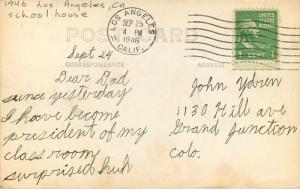 1946 Los Angeles, CA
school house
LOS ANGELES
SEP 25
4 PM
1946
CALIF.
POST CARD
1 CENT 1
CORRESPONDENCE
ADDRESS
Sept 24
Dear Dad
since yesterday
I have become
president of my
class room
surprised huh
John Ydren
1130 Hill ave
Grand Junction
Colo.